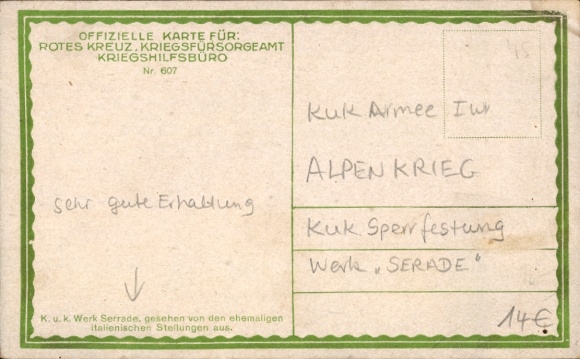 OFFIZIELLE KARTE FÜR:
ROTES KREUZ, KRIEGSFÜRSORGEAMT
KRIEGSHILFSBÜRO
Nr. 607
45
KuK Armee I WK
ALPENKRIEG
sehr gute Erhaltung
KuK Sperrfestung
Werk „SERADE"
K. u. k. Werk Serrade, gesehen von den ehemaligen
italienischen Stellungen aus.
14€